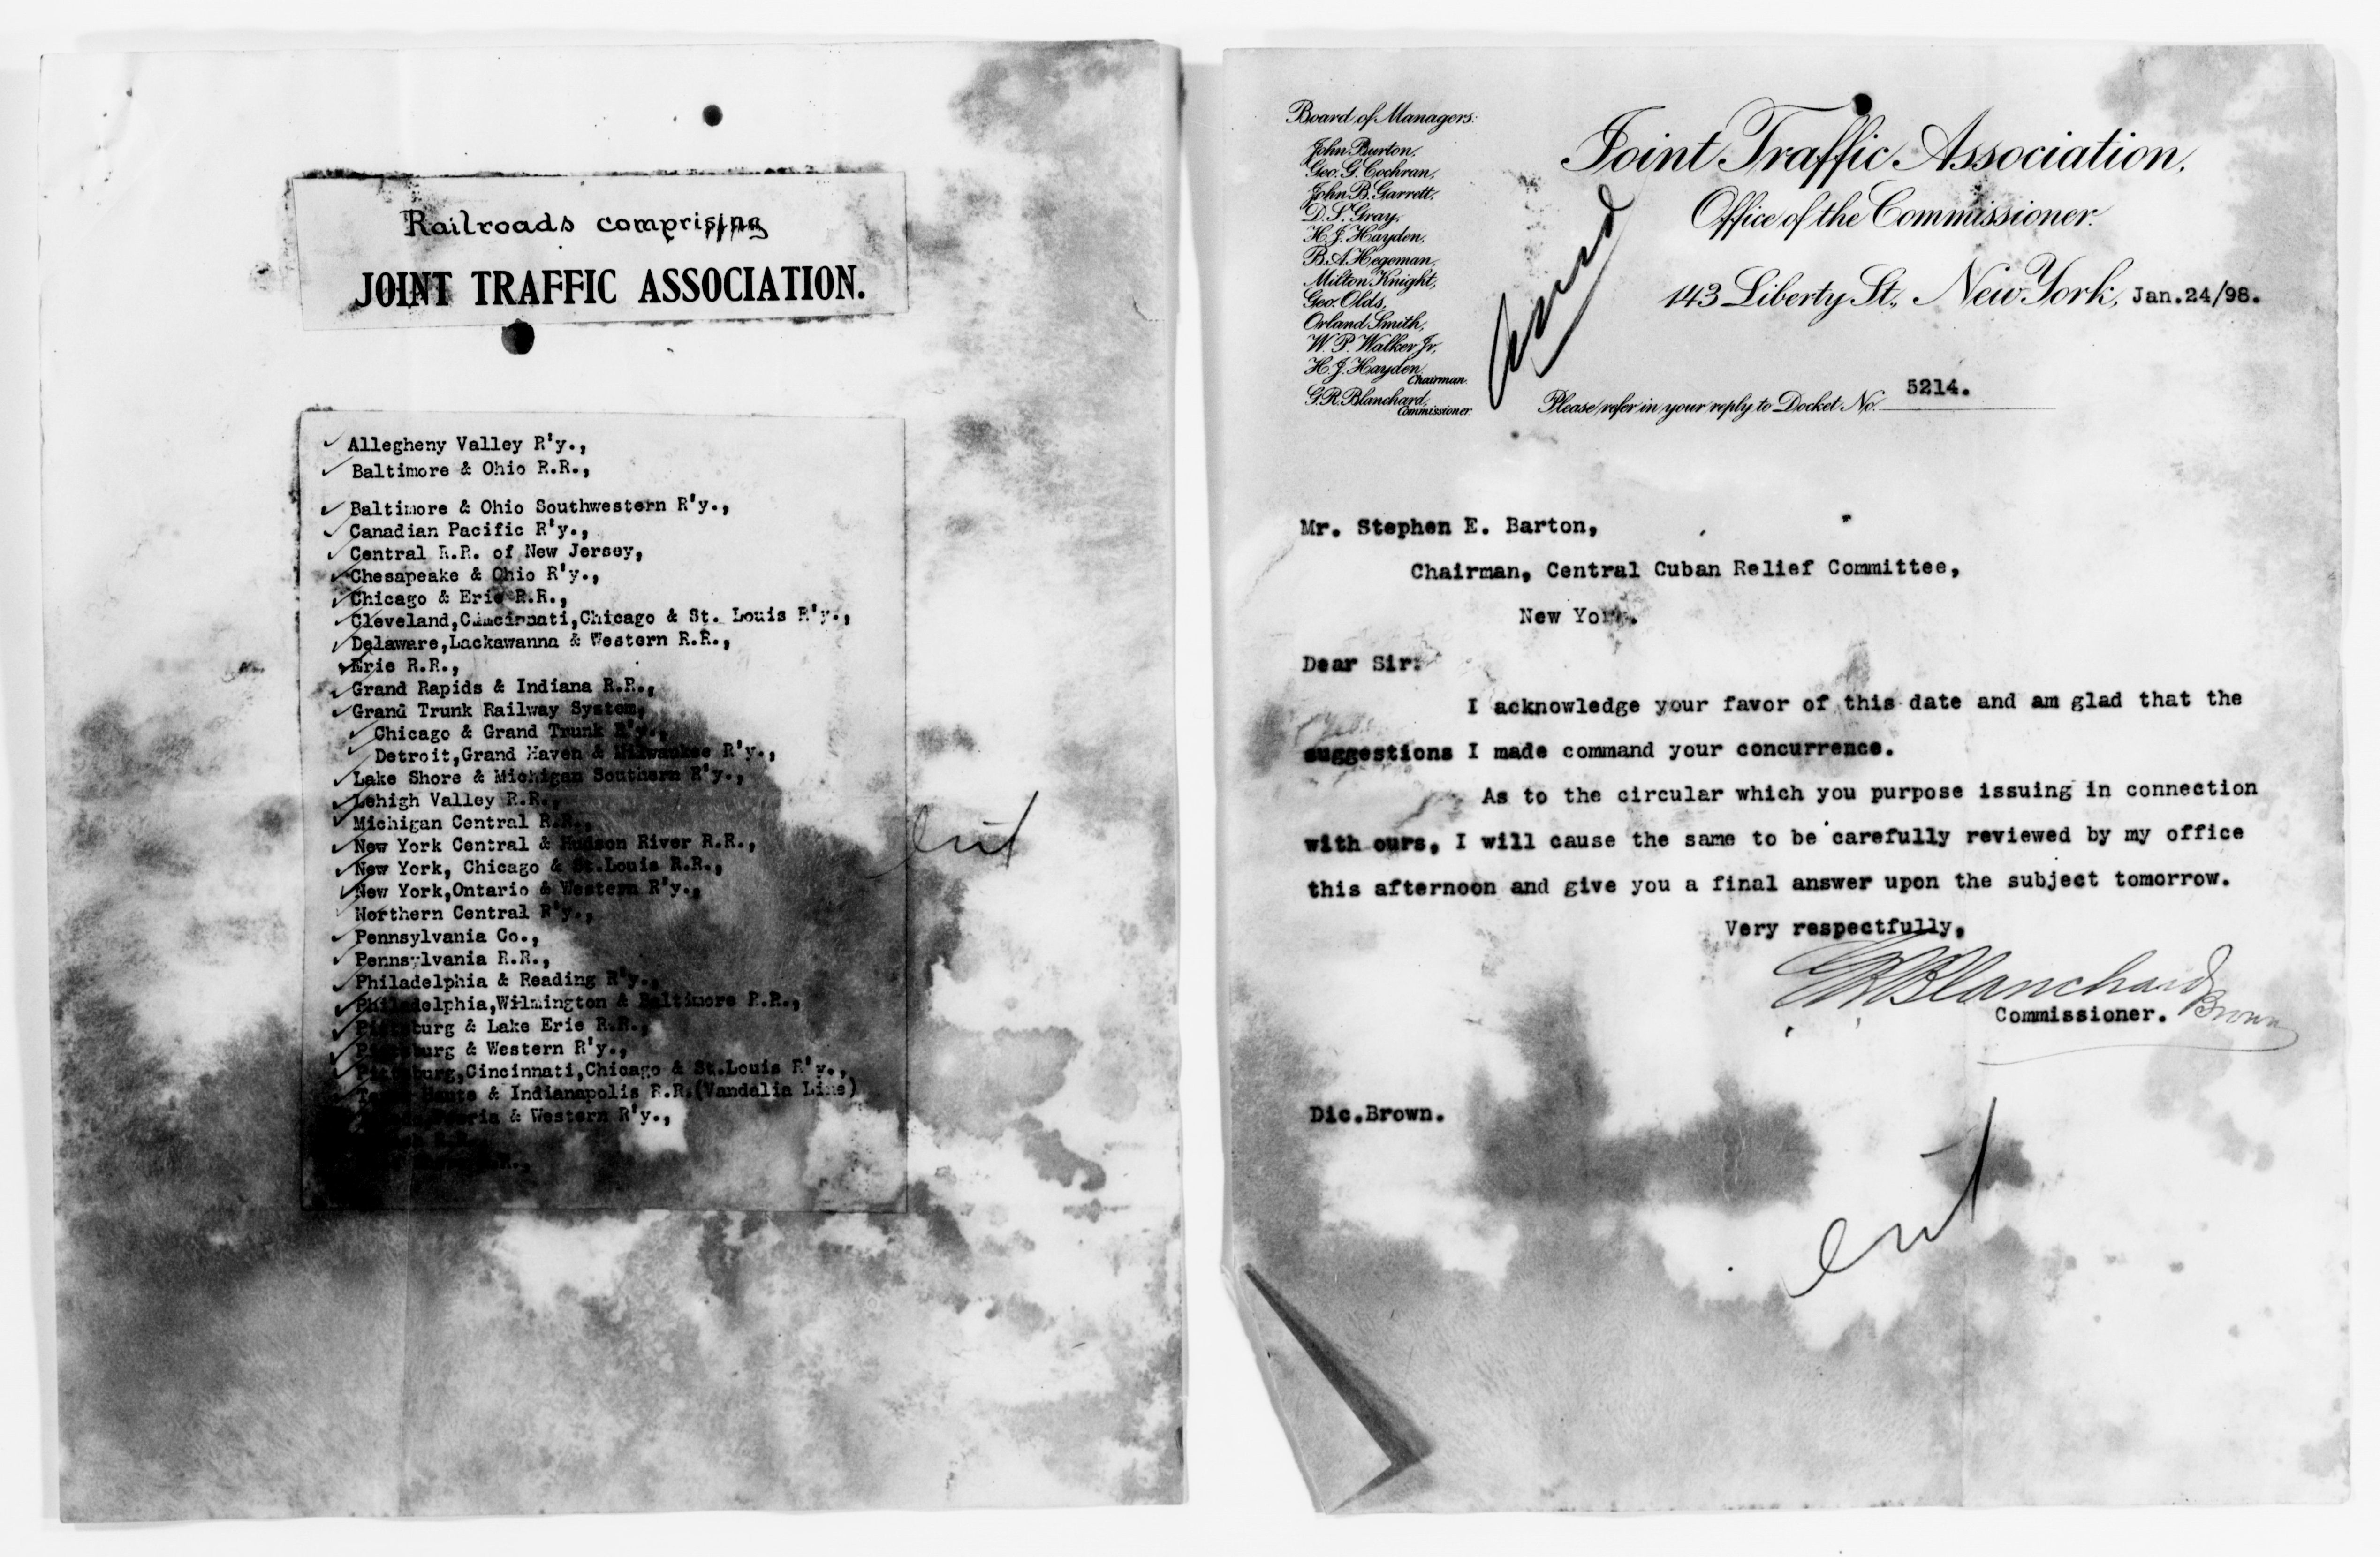 Railroads comprising
JOINT TRAFFIC ASSOCIATION.
Allegheny Valley R'y.,
Baltimore & Ohio R.R.,
Baltimore & Ohio Southwestern R'y.,
Canadian Pacific R'y.,
Central R.R. of New Jersey,
Chesapeake & Ohio R'y.,
Chicago & Erie R.R.,
Cleveland,Cincinnati,Chicago & St. Louis R'y.,
Delaware,Lackawanna & Western R.R.,
Erie R.R.,
Grand Rapids & Indiana R.R.,
Grand Trunk Railway System,
Chicago & Grand Trunk R'y.,
Detroit,Grand Haven & Milwaukee R'y.,
Lake Shore & Michigan Southern R'y.,
Lehigh Valley R.R.,
Michigan Central R.R.,
New York Central & Hudson River R.R.,
New York, Chicago & St.Louis R.R.,
New York,Ontario & Western R'y.,
Northern Central R'y.,
Pennsylvania Co.,
Pennsylvania R.R.,
Philadelphia & Reading R'y.,
Philadelphia,Wilmington & Baltimore R.R.,
Pittsburg & Lake Erie R.R.,
Pittsburg & Western R'y.,
Pittsburg,Cincinnati,Chicago & St.Louis R'y.,
Terre Haute & Indianapolis R.R.(Vandalia Line)
& Western R'y.,
ent
Board of Managers:
John Burton,
Geo. G. Cochran,
John B. Garrett,
D. S. Gray,
H. J. Hayden,
B. A. Hegeman,
Milton Knight,
Geo. Olds,
Orland Smith,
W. P. Walker Jr,
H. J. Hayden,
Chairman.
G. R. Blanchard,
Commissioner
Joint Traffic Association.
Office of the Commissioner.
143 Liberty St., New York, Jan.24/98.
Please refer in your reply to Docket No. 5214.
Mr. Stephen E. Barton,
Chairman, Central Cuban Relief Committee,
New York.
Dear Sir:
I acknowledge your favor of this date and am glad that the
suggestions I made command your concurrence.
As to the circular which you purpose issuing in connection
with ours, I will cause the same to be carefully reviewed by my office
this afternoon and give you a final answer upon the subject tomorrow.
Very respectfully,
G R Blanchard
Commissioner. Brown
Dic.Brown.
ent